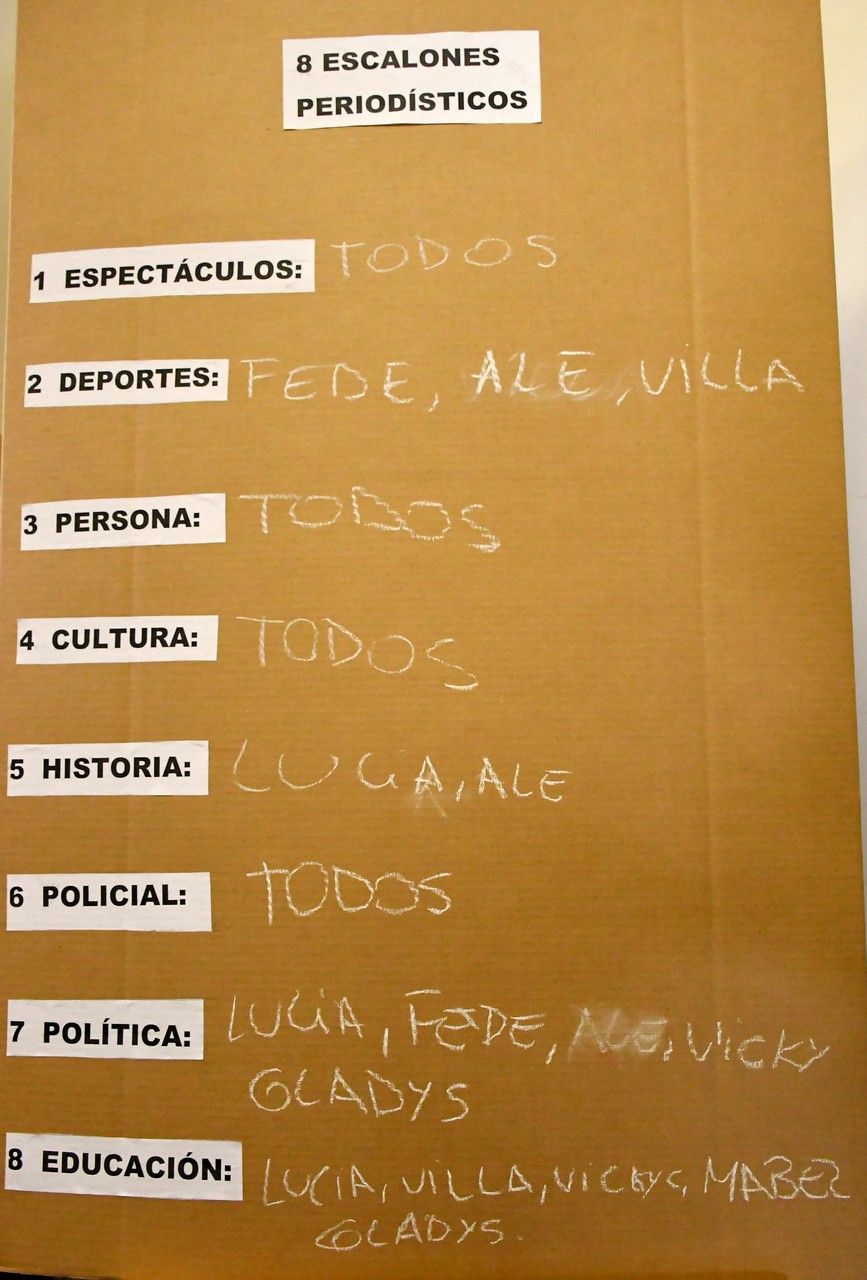 8 ESCALONES
PERIODÍSTICOS
1 ESPECTÁCULOS: TODOS
2 DEPORTES: FEDE, ALE, VILLA
3 PERSONA: TODOS
4 CULTURA: TODOS
5 HISTORIA: LUCIA, ALE
6 POLICIAL: TODOS
7 POLÍTICA: LUCIA, FEDE, ALE, VICKY
GLADYS
8 EDUCACIÓN: LUCIA, VILLA, VICKY, MABEL
GLADYS.